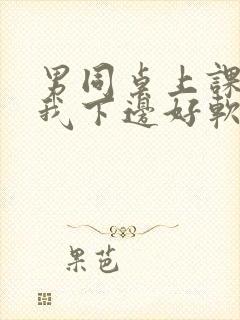 男同桌上課
我下邊好軟
果芭